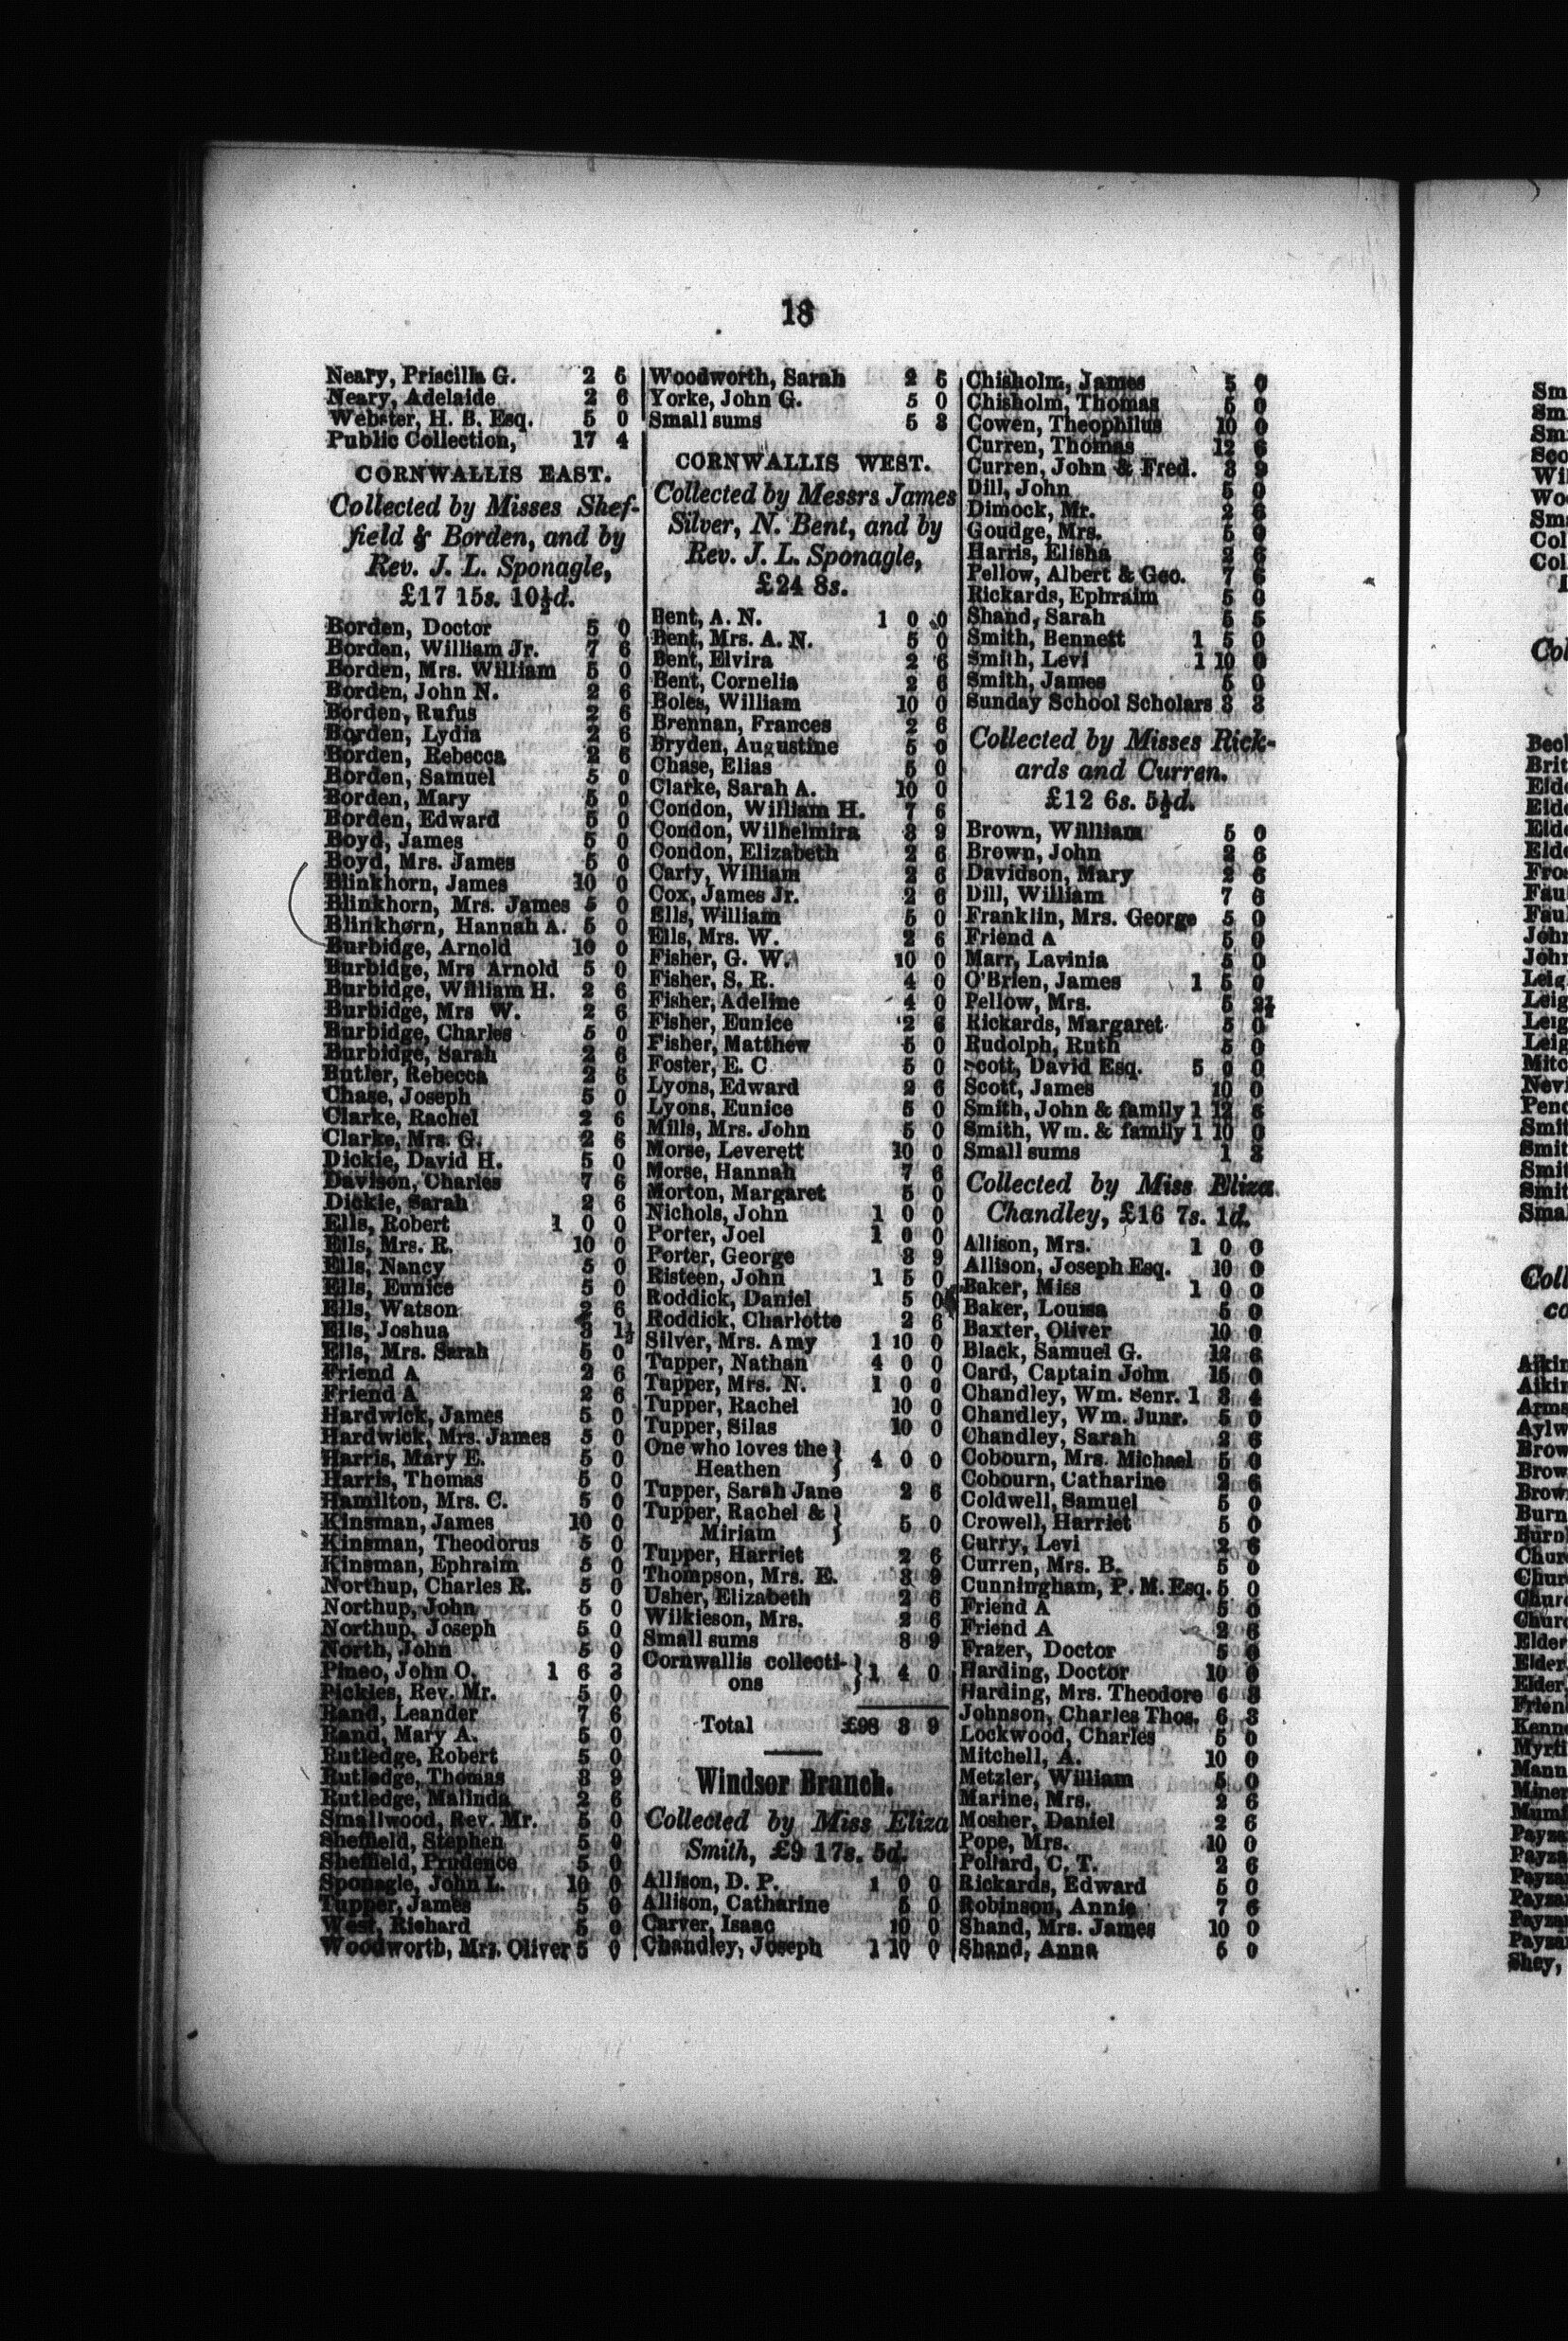 18
Neary, Priscilla G. 2 6
Neary, Adelaide 2 6
Webster, H. B. Esq. 5 0
Public Collection, 17 4
CORNWALLIS EAST.
Collected by Misses Shef-
field & Borden, and by
Rev. J. L. Sponagle,
£17 15s. 10½d.
Borden, Doctor 5 0
Borden, William Jr. 7 6
Borden, Mrs. William 5 0
Borden, John N. 2 6
Borden, Rufus 2 6
Borden, Lydia 2 6
Borden, Rebecca 2 6
Borden, Samuel 5 0
Borden, Mary 5 0
Borden, Edward 5 0
Boyd, James 5 0
Boyd, Mrs. James 5 0
Blinkhorn, James 10 0
Blinkhorn, Mrs. James 5 0
Blinkhorn, Hannah A. 5 0
Burbidge, Arnold 10 0
Burbidge, Mrs Arnold 5 0
Burbidge, William H. 2 6
Burbidge, Mrs W. 2 6
Burbidge, Charles 5 0
Burbidge, Sarah 2 6
Butler, Rebecca 2 6
Chase, Joseph 5 0
Clarke, Rachel 2 6
Clarke, Mrs. G. 2 6
Dickie, David H. 5 0
Davison, Charles 7 6
Dickie, Sarah 2 6
Ells, Robert 1 0 0
Ells, Mrs. R. 10 0
Ells, Nancy 5 0
Ells, Eunice 5 0
Ells, Watson 2 6
Ells, Joshua 3 1½
Ells, Mrs. Sarah 5 0
Friend A 2 6
Friend A 2 6
Hardwick, James 5 0
Hardwick, Mrs. James 5 0
Harris, Mary E. 5 0
Harris, Thomas 5 0
Hamilton, Mrs. C. 5 0
Kinsman, James 10 0
Kinsman, Theodorus 5 0
Kinsman, Ephraim 5 0
Northup, Charles R. 5 0
Northup, John 5 0
Northup, Joseph 5 0
North, John 5 0
Pineo, John O. 1 6 3
Pickles, Rev. Mr. 5 0
Rand, Leander 7 6
Rand, Mary A. 5 0
Rutledge, Robert 5 0
Rutledge, Thomas 3 9
Rutledge, Malinda 2 6
Smallwood, Rev. Mr. 5 0
Sheffield, Stephen 5 0
Sheffield, Prudence 5 0
Sponagle, John L. 10 0
Tupper, James 5 0
West, Richard 5 0
Woodworth, Mrs. Oliver 5 0
Woodworth, Sarah 2 6
Yorke, John G. 5 0
Small sums 5 8
CORNWALLIS WEST.
Collected by Messrs James
Silver, N. Bent, and by
Rev. J. L. Sponagle,
£24 8s.
Bent, A. N. 1 0 0
Bent, Mrs. A. N. 5 0
Bent, Elvira 2 6
Bent, Cornelia 2 6
Boles, William 10 0
Brennan, Frances 2 6
Bryden, Augustine 5 0
Chase, Elias 5 0
Clarke, Sarah A. 10 0
Condon, William H. 7 6
Condon, Wilhelmira 3 9
Condon, Elizabeth 2 6
Carty, William 2 6
Cox, James Jr. 2 6
Ells, William 5 0
Ells, Mrs. W. 2 6
Fisher, G. W. 10 0
Fisher, S. R. 4 0
Fisher, Adeline 4 0
Fisher, Eunice 2 6
Fisher, Matthew 5 0
Foster, E. C 5 0
Lyons, Edward 2 6
Lyons, Eunice 5 0
Mills, Mrs. John 5 0
Morse, Leverett 10 0
Morse, Hannah 7 6
Morton, Margaret 5 0
Nichols, John 1 0 0
Porter, Joel 1 0 0
Porter, George 3 9
Risteen, John 1 5 0
Roddick, Daniel 5 0
Roddick, Charlotte 2 6
Silver, Mrs. Amy 1 10 0
Tupper, Nathan 4 0 0
Tupper, Mrs. N. 1 0 0
Tupper, Rachel 10 0
Tupper, Silas 10 0
One who loves the
Heathen } 4 0 0
Tupper, Sarah Jane 2 6
Tupper, Rachel &
Miriam } 5 0
Tupper, Harriet 2 6
Thompson, Mrs. E. 3 9
Usher, Elizabeth 2 6
Wilkieson, Mrs. 2 6
Small sums 8 9
Cornwallis collecti-
ons } 1 4 0
Total £98 3 9
Windsor Branch.
Collected by Miss Eliza
Smith, £9 17s. 5d.
Allison, D. P. 1 0 0
Allison, Catharine 5 0
Carver, Isaac 10 0
Chandley, Joseph 1 10 0
Chisholm, James 5 0
Chisholm, Thomas 5 0
Cowen, Theophilus 10 0
Curren, Thomas 12 6
Curren, John & Fred. 3 9
Dill, John 5 0
Dimock, Mr. 2 6
Goudge, Mrs. 5 0
Harris, Elisha 2 6
Pellow, Albert & Geo. 7 6
Rickards, Ephraim 5 0
Shand, Sarah 5 5
Smith, Bennett 1 5 0
Smith, Levi 1 10 0
Smith, James 5 0
Sunday School Scholars 3 3
Collected by Misses Rick-
ards and Curren.
£12 6s. 5½d.
Brown, Willliam 5 0
Brown, John 2 6
Davidson, Mary 2 6
Dill, William 7 6
Franklin, Mrs. George 5 0
Friend A 5 0
Marr, Lavinia 5 0
O'Brien, James 1 5 0
Pellow, Mrs. 5 2½
Rickards, Margaret 5 0
Rudolph, Ruth 5 0
Scott, David Esq. 5 0 0
Scott, James 10 0
Smith, John & family 1 12 6
Smith, Wm. & family 1 10 0
Small sums 1 3
Collected by Miss Eliza
Chandley, £16 7s. 1d.
Allison, Mrs. 1 0 0
Allison, Joseph Esq. 10 0
Baker, Miss 1 0 0
Baker, Louisa 5 0
Baxter, Oliver 10 0
Black, Samuel G. 12 6
Card, Captain John 15 0
Chandley, Wm. Senr. 1 3 4
Chandley, Wm. Junr. 5 0
Chandley, Sarah 2 6
Cobourn, Mrs. Michael 5 0
Cobourn, Catharine 2 6
Coldwell, Samuel 5 0
Crowell, Harriet 5 0
Curry, Levi 2 6
Curren, Mrs. B. 5 0
Cunningham, P. M. Esq. 5 0
Friend A 5 0
Friend A 2 6
Frazer, Doctor 5 0
Harding, Doctor 10 0
Harding, Mrs. Theodore 6 3
Johnson, Charles Thos. 6 3
Lockwood, Charles 5 0
Mitchell, A. 10 0
Metzler, William 5 0
Marine, Mrs. 2 6
Mosher, Daniel 2 6
Pope, Mrs. 10 0
Pollard, C. T. 2 6
Rickards, Edward 5 0
Robinson, Annie 7 6
Shand, Mrs. James 10 0
Shand, Anna 5 0